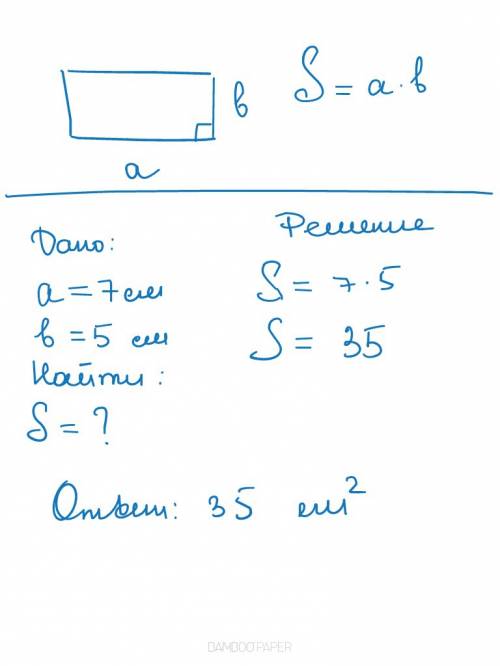 в S = a · в
a
Дано:
a = 7 см
в = 5 см
Найти:
S = ?
Решение
S = 7 · 5
S = 35
Ответ: 35 см²
BAMBOOPAPER